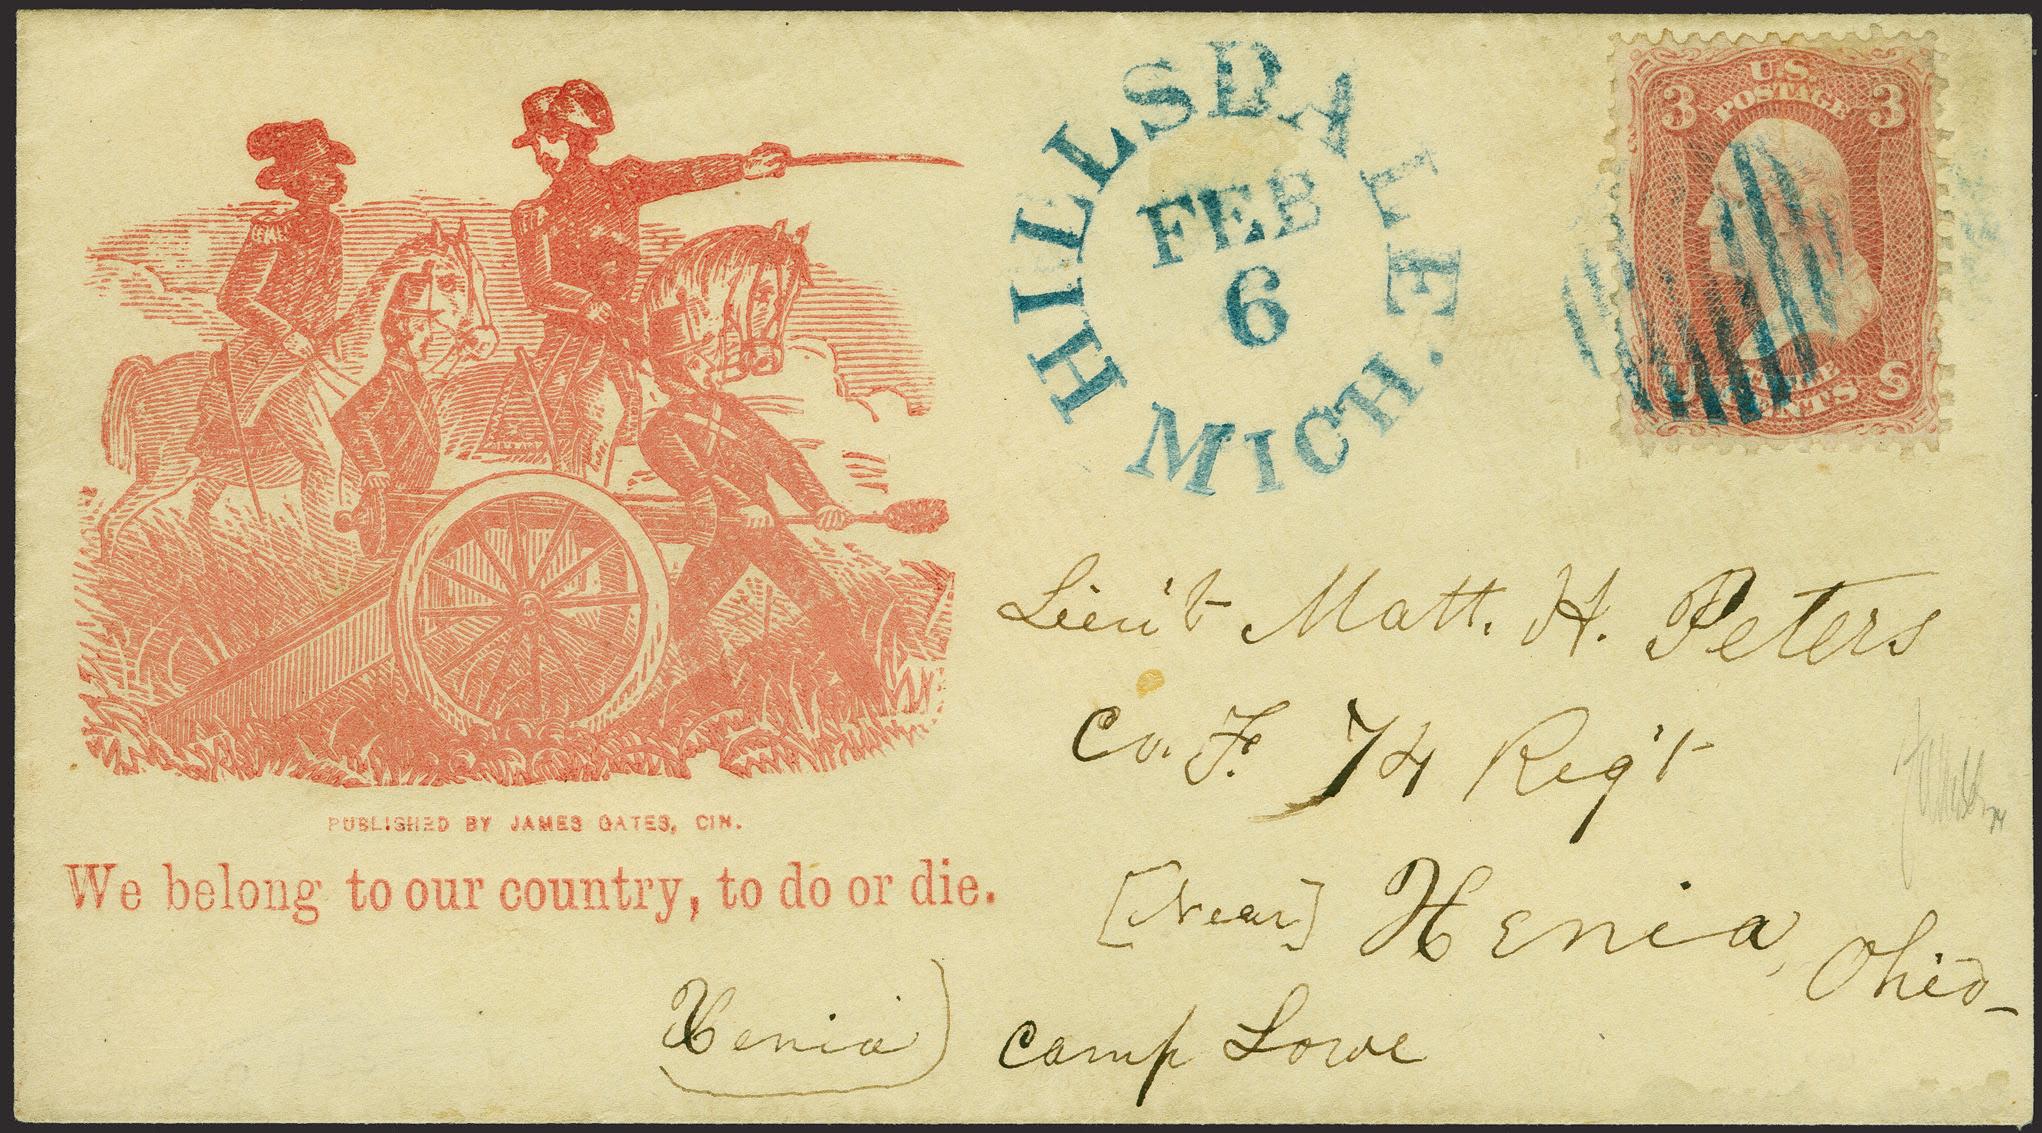 HILLSDALE MICH.
FEB
6
U.S.
POSTAGE
3 3
CENTS
PUBLISHED BY JAMES GATES, CIN.
We belong to our country, to do or die.
Lieu't Matt. H. Peters
Co. F. 74 Reg't
[Near] Xenia, Ohio
Xenia) Camp Lowe